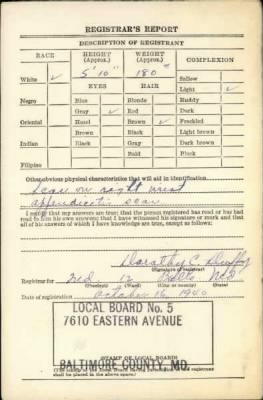 REGISTRAR'S REPORT
DESCRIPTION OF REGISTRANT
RACE HEIGHT (Approx.) WEIGHT (Approx.) COMPLEXION
White ✓ 5' 10" 180 # Sallow
EYES HAIR Light ✓
Negro Blue Blonde Ruddy
Gray ✓ Red Dark
Oriental Hazel Brown ✓ Freckled
Brown Black Light brown
Indian Black Gray Dark brown
Bald Black
Filipino
Other obvious physical characteristics that will aid in identification
Scar on right wrist
appendicitis scar
I certify that my answers are true; that the person registered has read or has had
read to him his own answers; that I have witnessed his signature or mark and that
all of his answers of which I have knowledge are true, except as follows:
Dorothy C. Duffy
(Signature of registrar)
Registrar for 2nd 12 Balto Md.
(Precinct) (Ward) (City or county) (State)
Date of registration October 16, 1940
LOCAL BOARD No. 5
7610 EASTERN AVENUE
BALTIMORE COUNTY, MD.
(STAMP OF LOCAL BOARD)
shall be placed in the above space.)